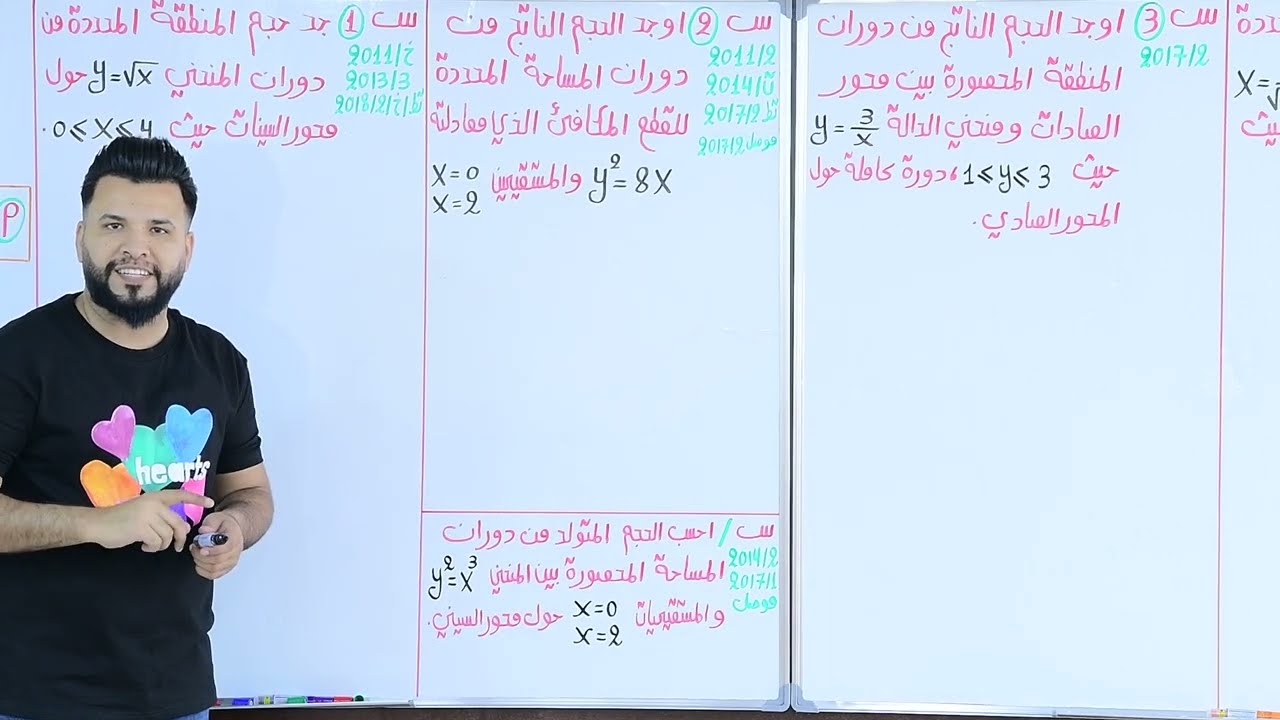 س 1 جد حجم المنطقة المحددة من
خ/2011
3/2013
دوران المنحني y=√x حول
محور السينات حيث 0≤x≤4.
س 2 اوجد الحجم الناتج من
2/2011
2014
دوران المساحة المحددة
2017/2
للقطع المكافئ الذي معادلته
موصل 2017/2
y²=8x والمستقيمين x=0
x=2
س/ احسب الحجم المتولد من دوران
2014/2
المساحة المحصورة بين المنحني y²=x³
2017/1
موصل
والمستقيمات x=0 حول محور السيني.
x=2
س 3 اوجد الحجم الناتج من دوران
2017/2
المنطقة المحصورة بين محور
الصادات ومنحني الدالة y=3/x
حيث 1≤y≤3، دورة كاملة حول
المحور الصادي.
P
hearts